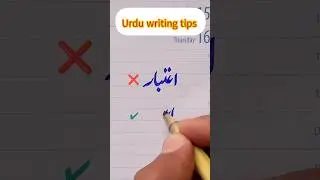 Urdu writing tips
15
Tuesday 16
اعتبار